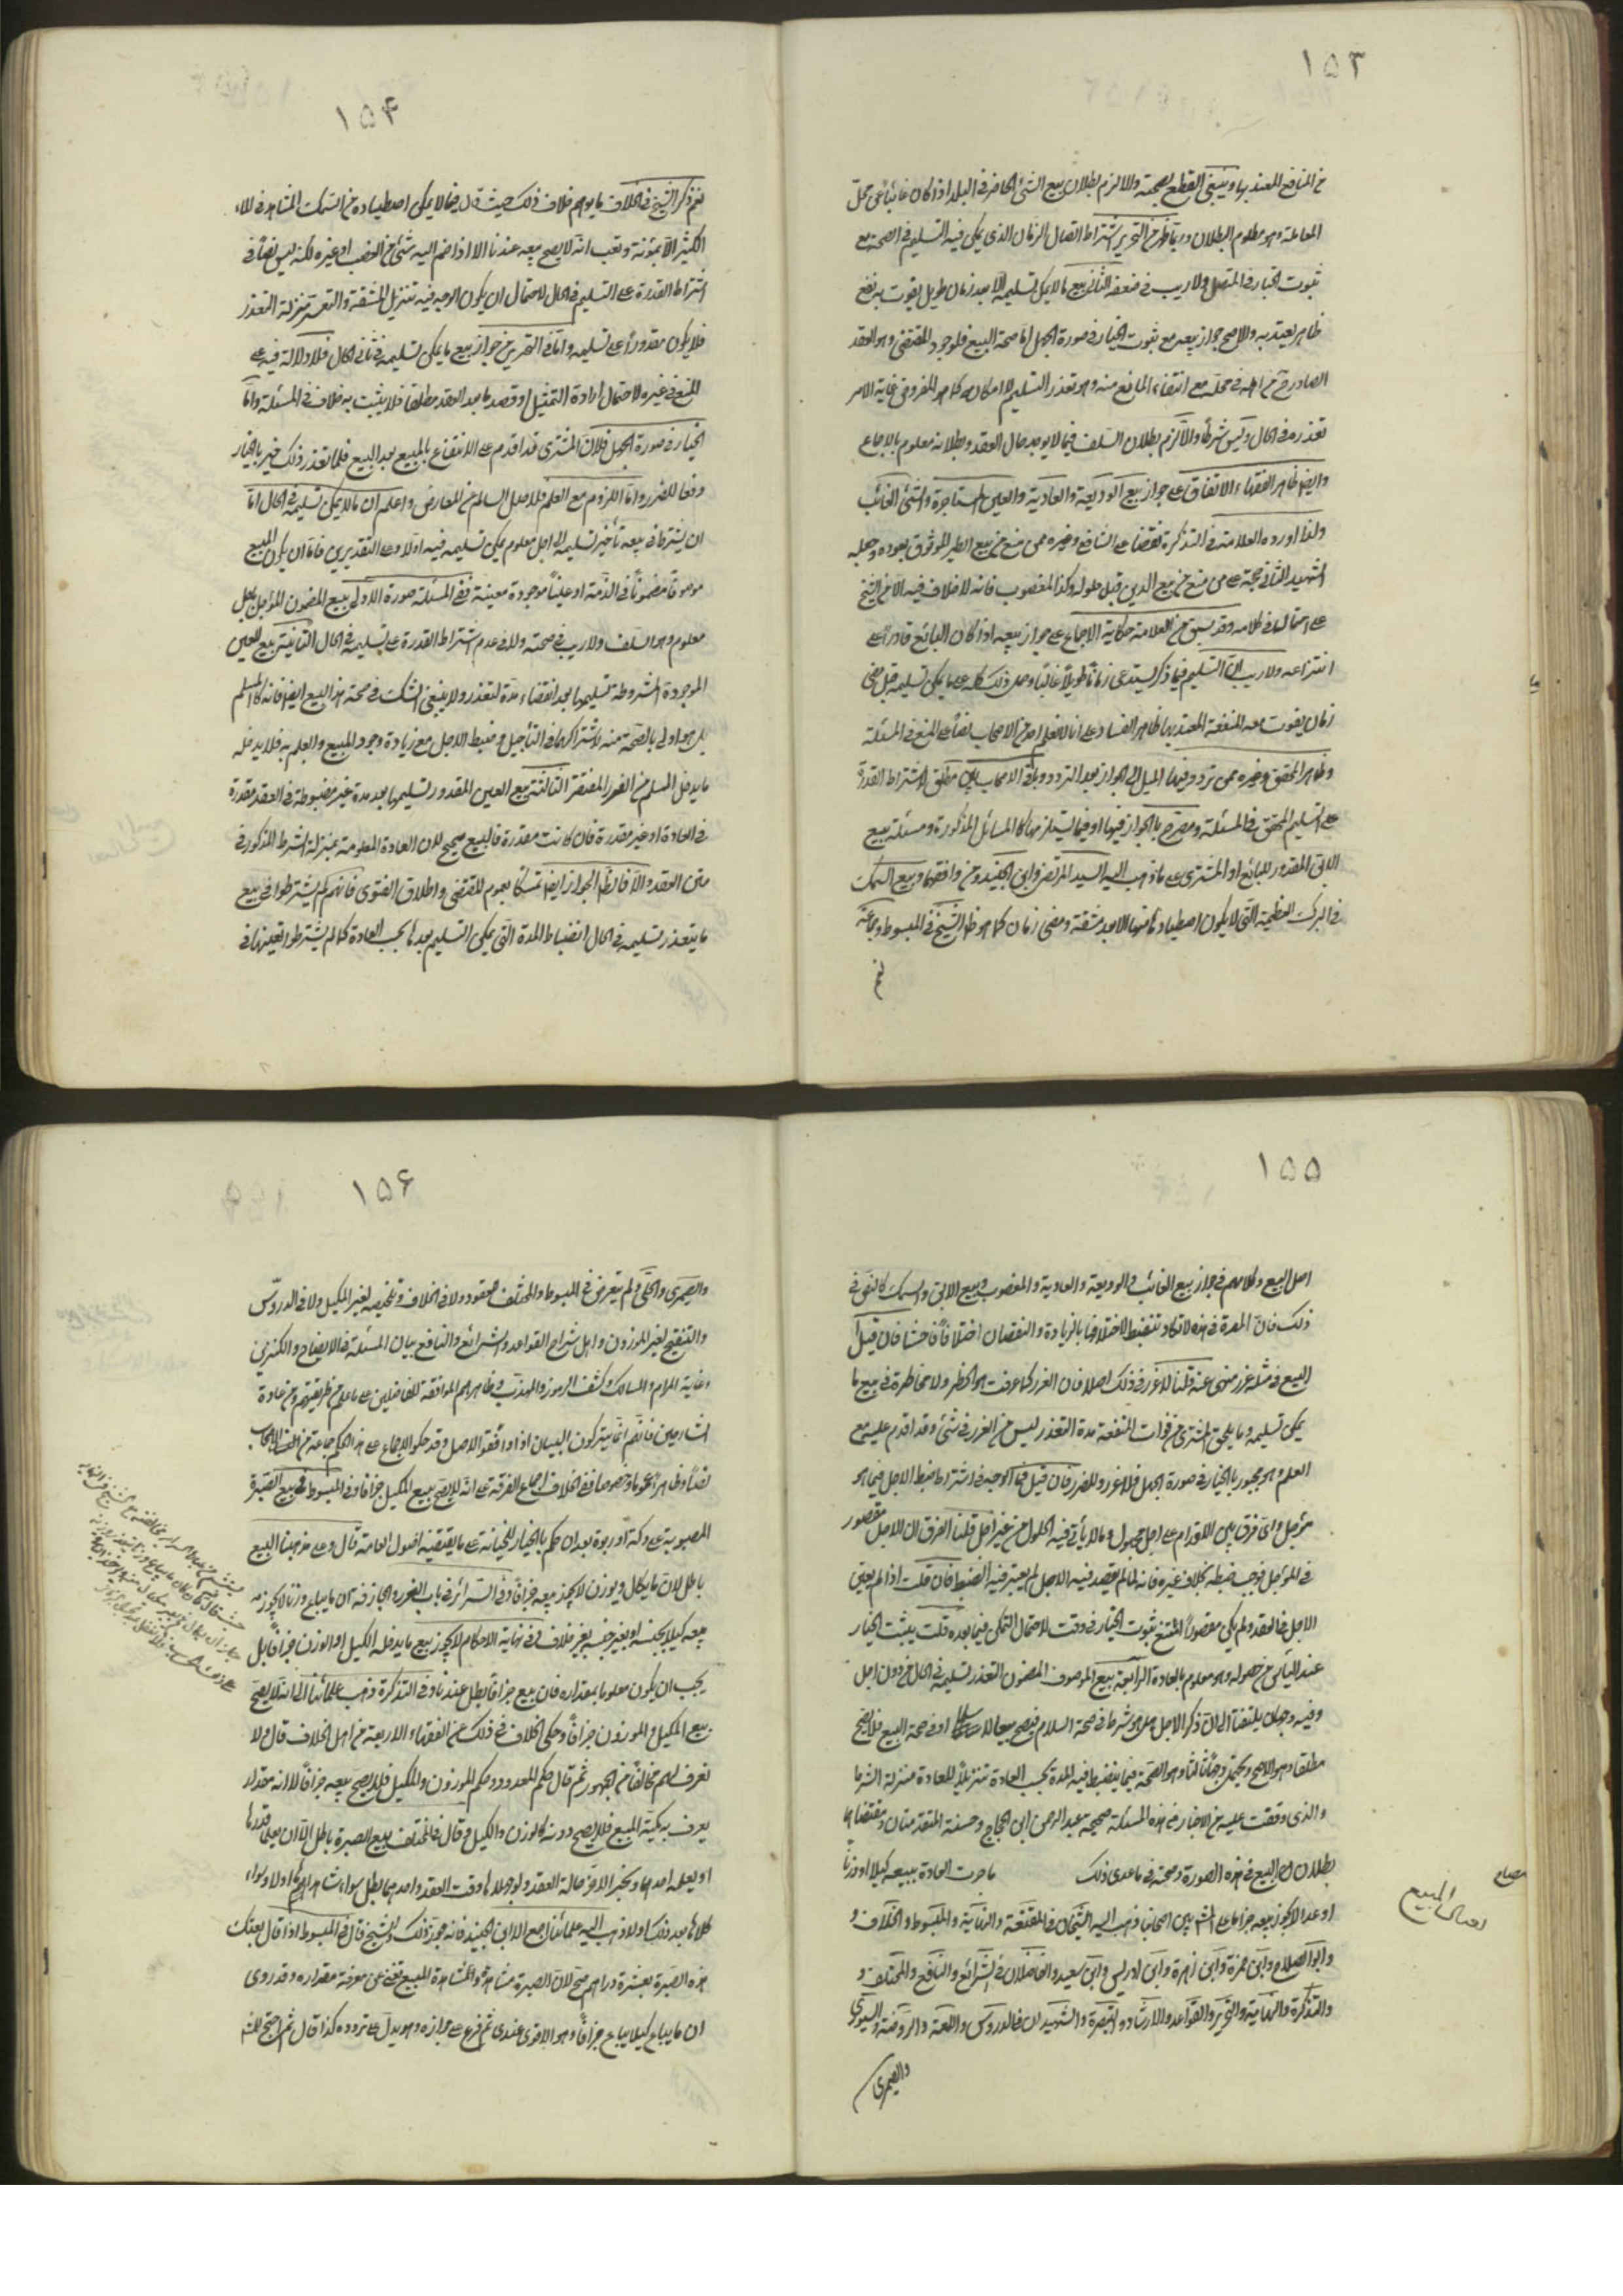 ١٥٣
من المنافع المعتد بها وينبغي القطع بصحته والا لزم بطلان بيع الشئ الحاضر في البلد اذا كان غائبا عن محل
المعاملة وهو معلوم البطلان وربما ظهر من التحرير اشتراط اتصال الزمان الذي يمكن فيه التسليم في الصحة مع
ثبوت الخيار في المتصل ولا ريب في ضعفه الثاني بيع ما لا يمكن تسليمه الا بعد زمان طويل يفوت به نفع
ظاهر يعتد به والاصح جواز بيعه مع ثبوت الخيار في صورة الجهل اما صحة البيع فلوجود المقتضي وهو العقد
الصادر من اهله في محله مع انتفاء المانع منه وهو تعذر التسليم لامكانه كما هو المفروض غاية الامر
تعذره في الحال وليس شرطا والا لزم بطلان السلف فيما لا يوجد حال العقد وبطلانه معلوم بالاجماع
وايضا ظاهر الفقهاء الاتفاق على جواز بيع الوديعة والعارية والعين المستاجرة والشئ الغائب
ولذا اورده العلامة في التذكرة نقضا على الشافعي وغيره ممن منع من بيع الطير الموثوق بعوده وجعله
الشهيد الثاني حجة على من منع من بيع الدين قبل حلوله وكذا المغصوب فانه لا خلاف فيه الا من الشيخ
على احتمال في كلامه وقد سبق من العلامة حكاية الاجماع على جواز بيعه اذا كان البائع قادرا على
انتزاعه ولا ريب ان التسليم فيما ذكر يستدعي زمانا طويلا غالبا وحمل ذلك كله على ما يمكن تسليمه قبل مضي
زمان يفوت معه المنفعة المعتد بها ظاهر الفساد على انا لا نعلم احدا من الاصحاب نصا على المنع في المسئلة
وظاهر المحقق وغيره ممن تردد فيها الميل الى الجواز بعد التردد وباقي الاصحاب بين مطلق لاشتراط القدرة
على التسليم المحقق في المسئلة ومصرح بالجواز فيها او فيما يستلزمها كالمسائل المذكورة ومسئلة بيع
الابق المقدور للبائع او المشتري على ما ذهب اليه السيد المرتضى وابن الجنيد ومن وافقهما وبيع السمك
في البرك العظيمة التي لا يكون اصطياد ما فيها الا بعد مشقة ومضي زمان كما هو ظ الشيخ في المبسوط وجماعة
نعم
١٥٤
نعم ذكر الشيخ في الخلاف ما يوهم خلاف ذلك حيث قال فيما لا يمكن اصطياده من السمك المشاهد في الماء
الكثير الا بمؤنة وتعب انه لا يصح بيعه عندنا الا اذا ضم اليه شئ من القصب او غيره لكنه ليس نصا في
اشتراط القدرة على التسليم في الحال لاحتمال ان يكون الوجه فيه تنزيل المشقة والتعسر منزلة التعذر
فلا يكون مقدورا على تسليمه واما في التحرير من جواز بيع ما يمكن تسليمه في ثاني الحال فلا دلالة فيه على
المنع في غيره لاحتمال ارادة التمثيل او قصد ما بعد العقد مطلقا فلا يثبت به خلاف في المسئلة واما
الخيار في صورة الجهل فلان المشتري قد اقدم على الانتفاع بالمبيع بعد البيع فلما تعذر ذلك خير بالخيار
دفعا للضرر واما اللزوم مع العلم فللاصل السالم عن المعارض واعلم ان ما لا يمكن تسليمه في الحال اما
ان يشترط في بيعه تأخير تسليمه الى اجل معلوم يمكن تسليمه فيه او لا وعلى التقديرين فاما ان يكون المبيع
موصوفا مضمونا في الذمة او عينا موجودة معينة ففي المسئلة صورة الاولى بيع المضمون المؤجل باجل
معلوم وهو السلف ولا ريب في صحته ولا في عدم اشتراط القدرة على تسليمه في الحال الثانية بيع العين
الموجودة المشروطة تسليمها بعد انقضاء مدة لتعذر ولا ينبغي الشك في صحة هذا البيع ايضا فانه كالسلم
بل هو اولى بالصحة منه لاشتراكهما في التأجيل وضبط الاجل مع زيادة وجود المبيع والعلم به فلا يدخله
ما يدخل السلم من الغرر المغتفر الثالثة بيع العين المقدور تسليمها بعد مدة غير مضبوطة في العقد مقدرة
في العادة او غير مقدرة فان كانت مقدرة فالبيع صحيح لان العادة المعلومة بمنزلة الشرط المذكور في
متن العقد والا فالظ الجواز ايضا تمسكا بعموم المقتضي واطلاق الفتوى فانهم لم يشترطوا في بيع
ما يتعذر تسليمه في الحال انضباط المدة التي يمكن التسليم بعدها بحسب العادة كما لم يشترطوا تعيينها في
١٥٥
اصل البيع وكلامهم في جواز بيع الغائب والوديعة والعارية والمغصوب وبيع الابق والسمك كالنص في
ذلك فان المدة في هذه لا تكاد تنضبط لاختلافها بالزيادة والنقصان اختلافا فاحشا فان قيل
البيع في مثله غرر منهي عنه قلنا لا غرر في ذلك اصلا فان الغرر كما عرفت هو الخطر ولا مخاطرة في بيع ما
يمكن تسليمه وما يلحق المشتري من فوات المنفعة مدة التعذر ليس من الغرر في شئ وقد اقدم عليه مع
العلم وهو مجبور بالخيار في صورة الجهل فلا غرر ولا ضرر فان قيل فما الوجه في اشتراط ضبط الاجل فيما هو
مؤجل واي فرق بين الاقدام على اجل مجهول وما لا يأتي فيه الحلول من غير اجل قلنا الفرق ان الاجل مقصور
في المؤجل فوجب ضبطه بخلاف غيره فانه لما لم يقصد فيه الاجل لم يعتبر فيه الضبط فان قلت اذا لم يعين
الاجل في العقد ولم يكن مقصورا امتنع ثبوت الخيار في وقت لاحتمال التمكن فيما بعده قلت يثبت الخيار
عند اليأس من حصوله وهو معلوم بالعادة الرابعة بيع الموصوف المضمون المتعذر تسليمه في الحال من دون اجل
وفيه وجهان يلتفتان الى ان ذكر الاجل هل هو شرط في صحة السلام فيصح بيعا لا سلما او في صحة البيع فلا يصح
مطلقا وهو الاصح ويحتمل وجها ثالثا وهو الصحة فيما ينضبط فيه المدة بحسب العادة تنزيلا للعادة منزلة الشرط
والذي وقفت عليه من الاخبار في هذه المسئلة صحيحة عبد الرحمن ابن الحجاج وحسنة المتقدمتان ومقتضاهما
بطلان البيع في هذه الصورة وصحته في ما عدى ذلك ما جرت العادة ببيعه كيلا او وزنا
او عدا لا يجوز بيعه جزافا على المش بين اصحابنا ذهب اليه الشيخان في المقنعة والنهاية والمبسوط والخلاف و
وابو الصلاح وابن حمزة وابن زهرة وابن ادريس وابن سعيد والفاضلان في الشرائع والنافع والمختلف و
والتذكرة والنهاية والتحرير والقواعد والارشاد والتبصرة والشهيدان في الدروس واللمعة والروضة والسيوري
والصيمري
مصباح
المبيع
١٥٦
والصيمري والحلي ولم يتعرض في المبسوط والمختلف للمعدود ولا في الخلاف وتلخيصه لغير المكيل ولا في الدروس
والتنقيح لغير الموزون واهل شراح القواعد والشرائع والنافع بيان المسئلة في الايضاح والكنز في
وغاية المرام والمسالك وكشف الرموز والمهذب وظاهرهم الموافقة للفاضلين على ما علم من طريقتهم ومن عادة
الشارحين فانهم انما يتركون البيان اذا وافقوا الاصل وقد حكي الاجماع على هذا الحكم جماعة من الاصحاب
نصا وظاهرا عموما وخصوصا ففي الخلاف اجماع الفرقة على انه لا يصح بيع المكيل جزافا وفي المبسوط في بيع الصبرة
المصبوبة على دكة او ربوة بعد ان حكم بالخيار للخيانة على ما يقتضيه اصول العامة قال وعلى مذهبنا البيع
باطل لان ما يكال ويوزن لا يجوز بيعه جزافا وفي السرائر في باب الغرر والمجازفة ان ما يباع وزنا لا يجوز
بيعه كيلا بجنسه او بغير جنسه بغير خلاف وفي نهاية الاحكام لا يجوز بيع ما يدخله الكيل او الوزن جزافا بل
يجب ان يكون معلوما بمقداره فان بيع جزافا بطل عندنا وفي التذكرة ذهب علمائنا الى انه لا يصح
بيع المكيل والموزون جزافا وحكى الخلاف في ذلك عن الفقهاء الاربعة من اهل الخلاف قال ولا
نعرف لهم مخالفا من الجمهور ثم قال حكم المعدود حكم الموزون والمكيل فلا يصح بيعه جزافا لانه مقدار
يعرف به كمية المبيع فلا يصح دونه كالوزن والكيل وقال في المختلف بيع الصبرة باطل الا ان يعلما قدرها
او يعلمه احدهما ويخبر الاخر حالة العقد ولو جهلاها وقت العقد او احدهما بطل سواء شاهداها او لا وسواء
كالاها بعد ذلك او لا ذهب اليه علمائنا اجمع الا ابن الجنيد فانه جوز ذلك والشيخ قال في المبسوط اذا قال بعتك
هذه الصبرة بعشرة دراهم صح لان الصبرة مشاهدة والمشاهدة المبيع تغني عن معرفة مقداره وقد روي
ان ما يباع كيلا لا يباع جزافا وهو الاقوى عندي ثم فرع على جوازه وهو يدل على تردده كذا قال ثم احتج للشيخ